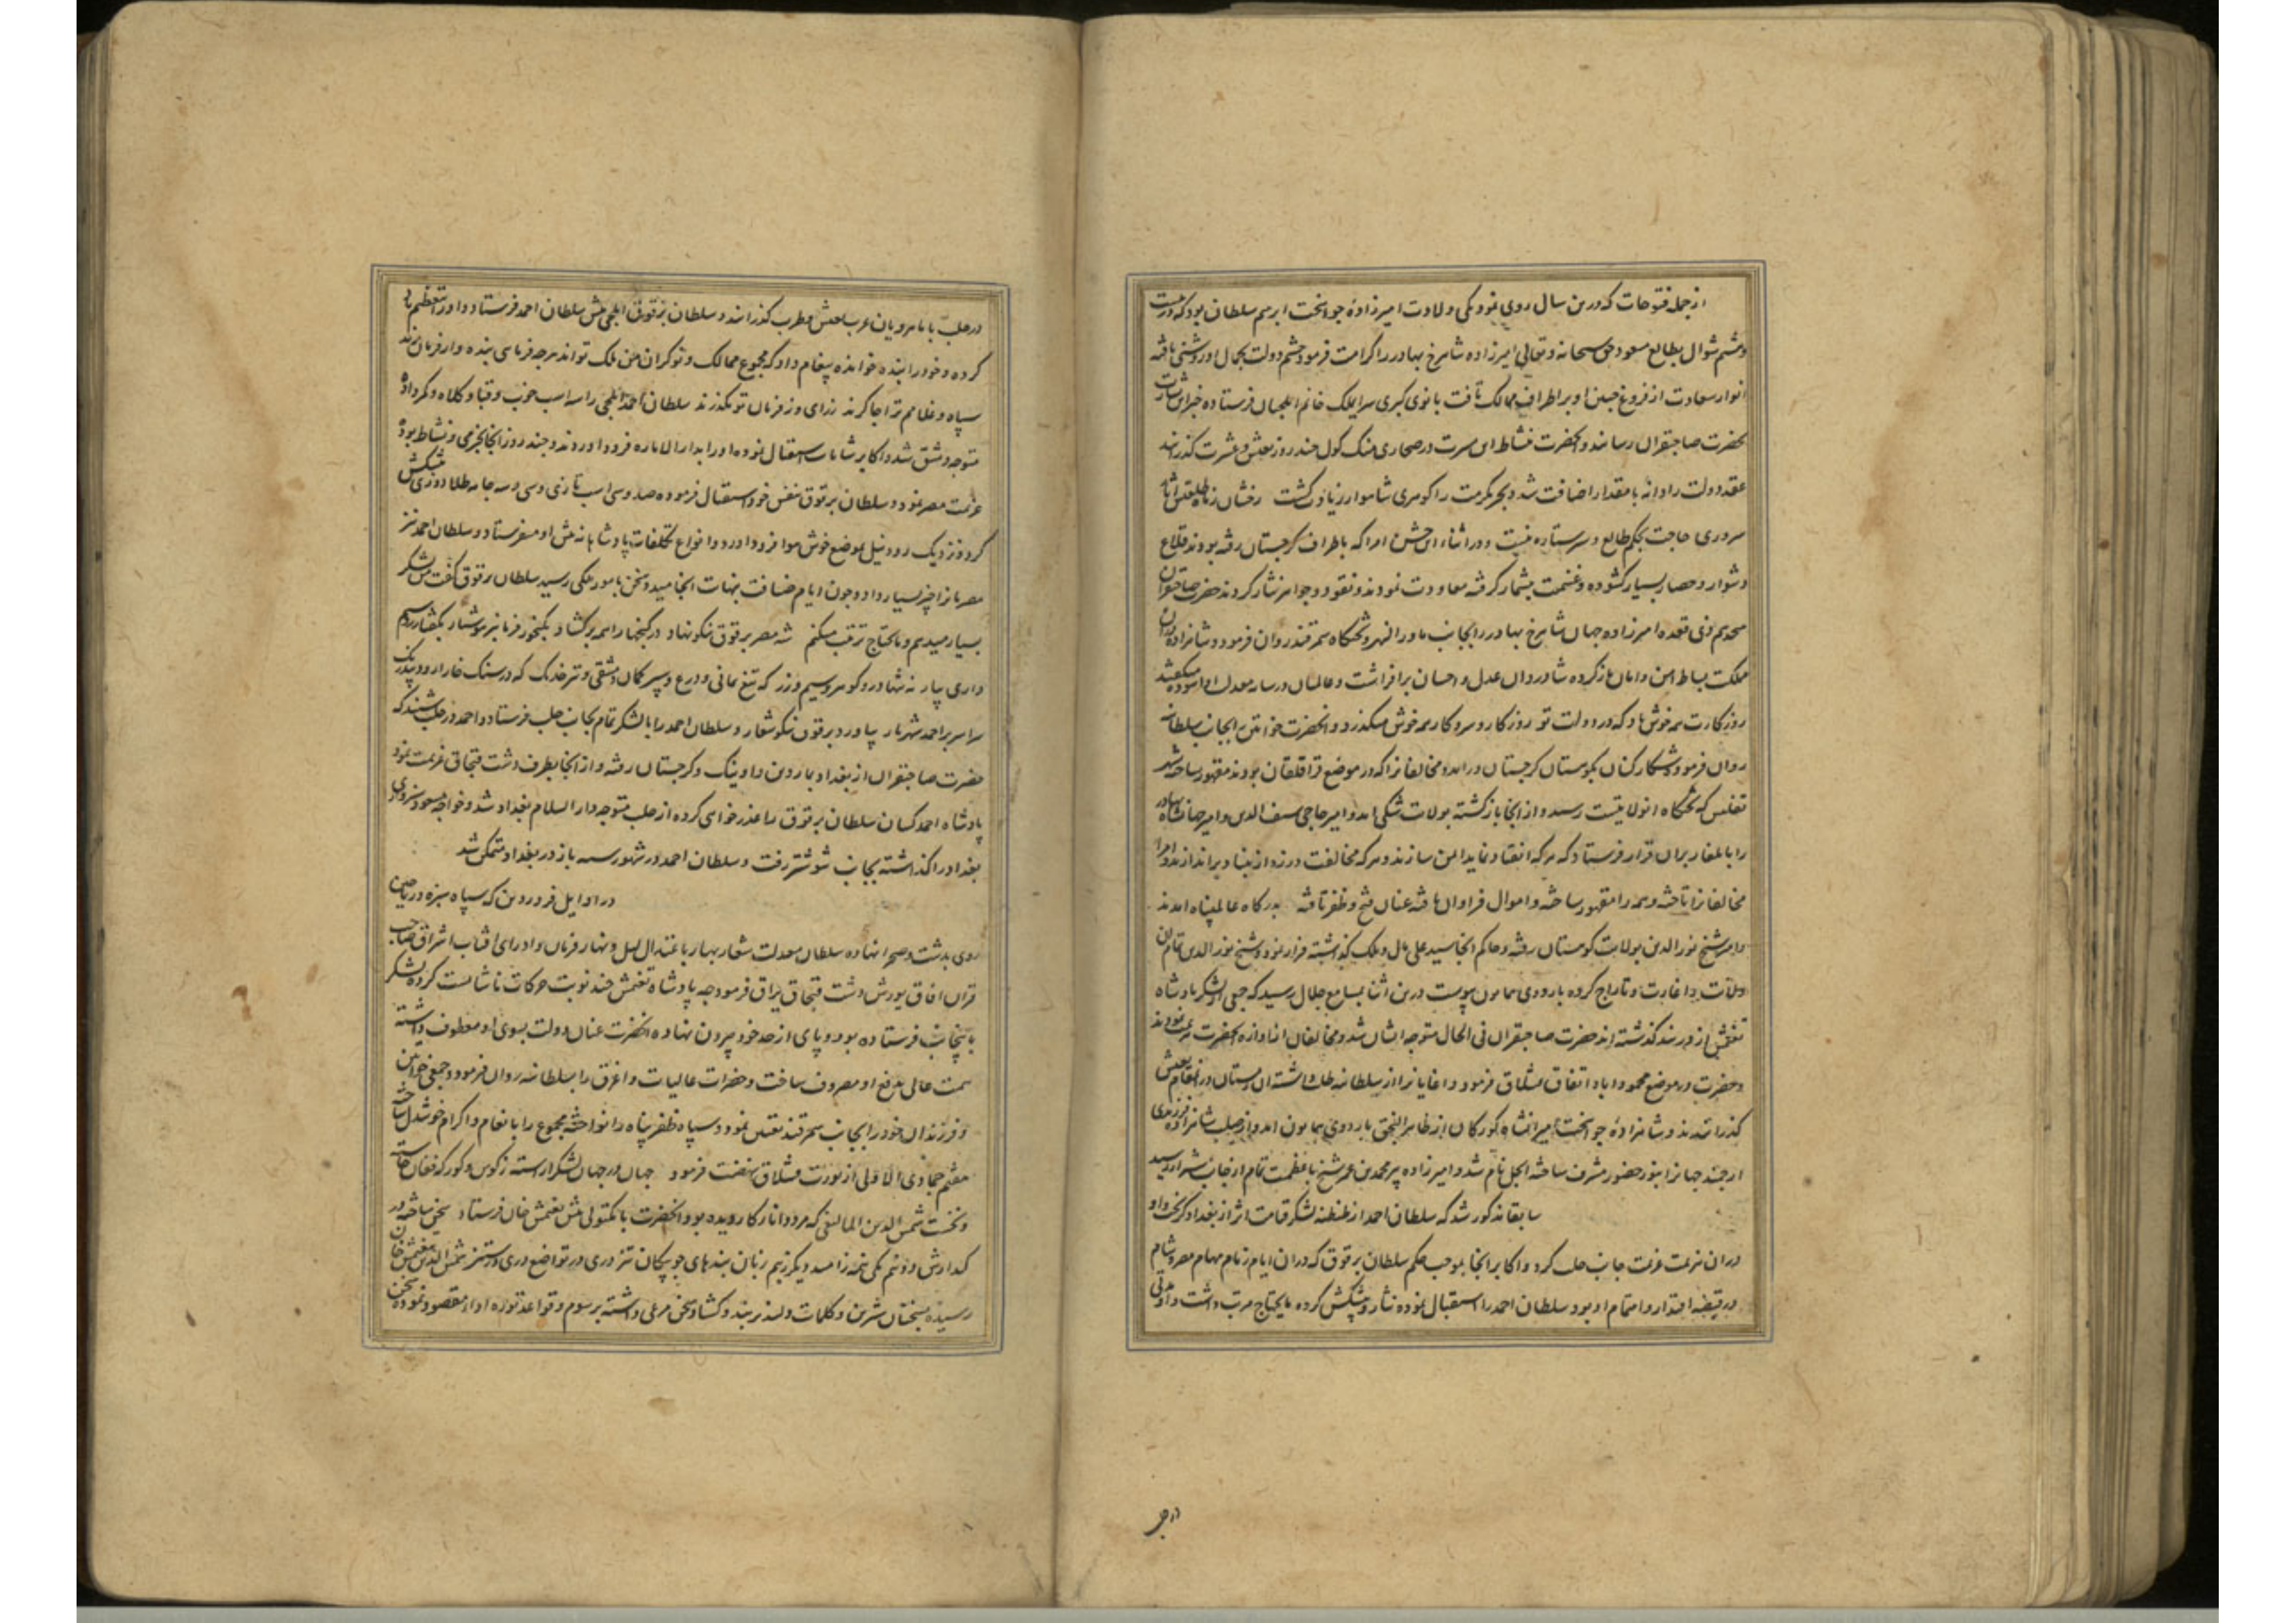 از جمله فتوحات که درین سال روی نمود یکی ولادت امیرزاده جوانبخت ابرهیم سلطان بود که در بیست
و ششم شوال بطالع مسعود حق سبحانه و تعالی امیرزاده شاهرخ بهادر را کرامت فرمود چشم دولت بجمال او روشنی یافته
انوار سعادت از فروغ جبین او بر اطراف ممالک تافت بانوی کبری سرای ملک خانم ایلچیان فرستاده خبر این بشارت
بحضرت صاحبقران رسانیدند و آنحضرت نشاط این مسرت در صحاری منک کول چند روز بعیش و عشرت گذرانید
عقد دولت را دانه با مقدار اضافت شد و بحر مکرمت را گوهری شاهوار زیادت گشت رخشان ز ماه طلعتش آثار
سروری حاجت بحکم طالع و سیر ستاره نیست و در اثناء این جشن امرا که باطراف گرجستان رفته بودند قلاع
دشوار و حصار بسیار گشوده و غنیمت بیشمار گرفته معاودت نمودند و نقود و جواهر نثار کردند حضرت صاحبقران
هجدهم ذی قعده امیرزاده جهان شاهرخ بهادر را بجانب ماوراالنهر و تختگاه سمرقند روان فرمود و شاهزاده در آن
مملکت بساط امن و امان باز کرده شادروان عدل و احسان برافراشت و عالمیان در سایه معدلت او آسوده میگفتند
روزگارت همه خوش باد که در دولت تو روزگار و سر و کار همه خوش میگذرد و آنحضرت خواتین را بجانب سلطانیه
روان فرمود و شکار کنان بکوهستان گرجستان درآمد و مخالفان را که در موضع قراقلقان بودند مقهور ساخته بشهر
تفلیس که تختگاه آن ولایتست رسید و از آنجا بازگشته بولایت شکی آمد و امیر حاجی سیف الدین و امیر جهانشاه بهادر
را بایلغار بر آن قرار فرستاد که هر که انقیاد نماید ایمن سازند و هر که مخالفت ورزد از بنیاد براندازند و امرا
مخالفان را تاخته و همه را مقهور ساخته و اموال فراوان یافته عنان فتح و ظفر تافته بدرگاه عالم پناه آمدند
و امیر شیخ نورالدین بولایت کوهستان رفته و حاکم آنجا سید علی مال و ملک گذاشته فرار نمود و شیخ نورالدین تمام آن
ولایت را غارت و تاراج کرده باردوی همایون پیوست درین اثنا بمسامع جلال رسید که جمعی از لشکر پادشاه
تغتمش از دربند گذشته اند حضرت صاحبقران فی الحال متوجه ایشان شد و مخالفان از آوازه آنحضرت هزیمت نمودند
و حضرت در موضع محمودآباد اتفاق قشلاق فرمود و آغایان را از سلطانیه طلب داشته آن زمستان در آن مقام بعیش
گذرانیدند و شاهزاده جوانبخت امیرانشاه کورکان از ظاهر النجق باردوی همایون آمد و از صلب شاهزاده فرزندی
ارجمند جهان را بنور حضور مشرف ساخته ایجل نام شد و امیرزاده پیرمحمد بن عمرشیخ باعظمت تمام از جانب شیراز رسید
سابقا مذکور شد که سلطان احمد از طنطنه لشکر قیامت اثر از بغداد گریخت و او
در آن هزیمت عزیمت جانب حلب کرد و اکابر آنجا بموجب حکم سلطان برقوق که در آن ایام زمام مهام مصر و شام
در قبضه اقتدار و اهتمام او بود سلطان احمد را استقبال نموده نثار و پیشکش کرده مایحتاج مرتب داشت و او مدتی
در حلب
در حلب با ماهرویان عرب بعیش و طرب گذرانید و سلطان برقوق ایلچی پیش سلطان احمد فرستاد و او را تعظیم بسیار
کرده و خود را بنده خوانده پیغام داد که مجموع ممالک و نوکران من ملک تواند هر چه فرمایی بنده وار فرمان برند
سپاه و غلامم ترا چاکرند ز رای و ز فرمان تو نگذرند سلطان احمد ایلچی را سه اسب خوب و قبا و کلاه و کمر داده
متوجه دمشق شد و اکابر شام باستقبال نموده او را بدار الاماره فرود آوردند و چند روز آنجا بخرمی و نشاط بوده
عزیمت مصر نمود و سلطان برقوق بنفس خود استقبال فرموده صد و سی اسب تازی و سی و سه جامه طلادوزی پیشکش
کرد و نزدیک رود نیل بموضع خوش هوا فرود آورد و انواع تکلفات پادشاهانه پیش او میفرستاد و سلطان احمد نیز
مصریانرا چیز بسیار داد و چون ایام ضیافت بنهایت انجامید و سخن بامور ملکی رسید سلطان برقوق گفت من لشکر
بسیار میدهم و مایحتاج ترتیب میکنم شه مصر برقوق نیکونهاد در گنجها را همه برگشاد بگنجور فرما نیز هوشیار بگفتا زر و سیم
داری بیار نه تنها زر و گوهر و سیم و زر که تیغ یمانی و درع و سپر کمان دمشقی و تیر خدنگ که در سنگ خارا رود بیدرنگ
سراسر بر احمد شهریار بیاورد برقوق نیکو شعار و سلطان احمد را با لشکر تمام بجانب حلب فرستاد و احمد در حلب شنید که
حضرت صاحبقران از بغداد بماردین و اونیک و گرجستان رفته و از آنجا بطرف دشت قبچاق عزیمت نمود
پادشاه احمد کسان سلطان برقوق را عذر خواهی کرده از حلب متوجه دارالسلام بغداد شد و خواجه مسعود سبزواری
بغداد را گذاشته بجانب شوشتر رفت و سلطان احمد در شهور سنه باز در بغداد متمکن شد
در اوایل فروردین که سپاه سبزه و ریاحین
روی بدشت و صحرا نهاده سلطان معدلت شعار بهار باغتدال لیل و نهار فرمان داد رای آفتاب اشراق صاحب
قران آفاق یورش دشت قبچاق یراق فرمود چه پادشاه تغتمش چند نوبت حرکات ناشایست کرده لشکر
باینجانب فرستاده بود و پای از حد خود بیرون نهاده آنحضرت عنان دولت بسوی او معطوف داشته
همت عالی بدفع او مصروف ساخت و حضرات عالیات و اغرق را بسلطانیه روان فرمود و جمعی خواتین
و فرزندان خود را بجانب سمرقند تعیین نمود و سپاه ظفر پناه را نواخته مجموع را بانعام و اکرام خوشدل ساخته
هفتم جمادی الاولی از یورت قشلاق نهضت فرمود جهان در جهان لشکر آراسته ز کوس و گورکه فغان خاسته
و نخست شمس الدین المالیغی که مرد دانا و کار دیده بود آنحضرت با مکتوبی پیش تغتمش خان فرستاد سخن ساخته در
گدازش دو نیم یکی نیمه ز امید و دیگر ز بیم زبان بند های چو پیکان تیز دری در تواضع دری در ستیز شمس الدین پیش تغتمش خان
رسیده بسخنان شیرین و کلمات دلپذیر بند و گشاد سخن مرعی داشته برسوم و قواعد توره اداء مقصود نموده سخن